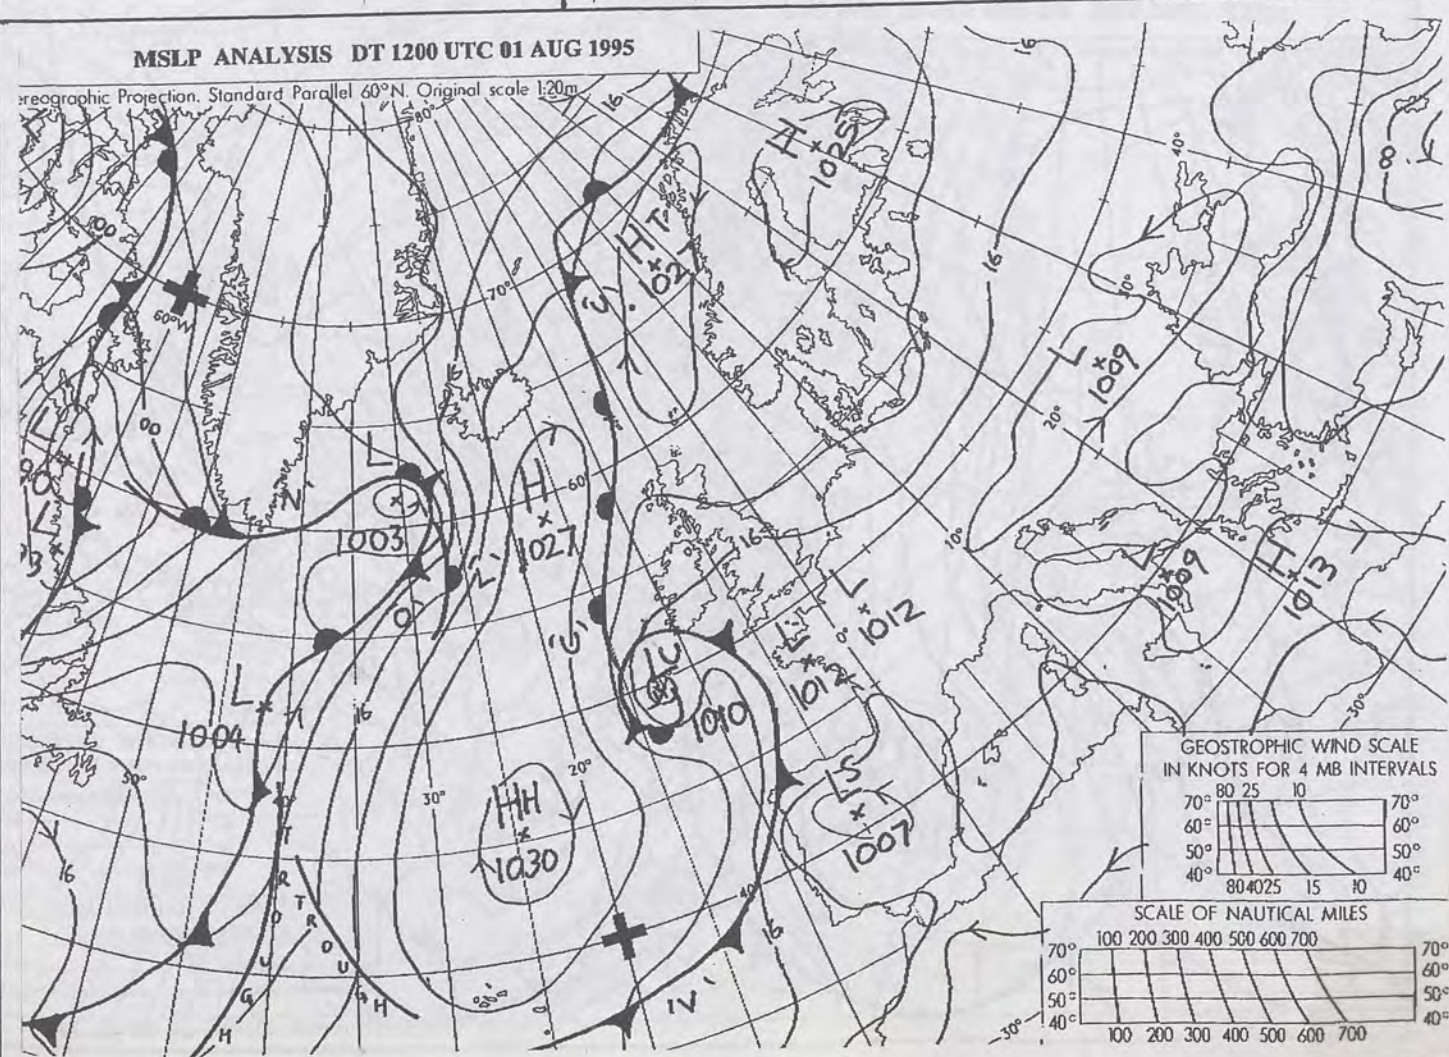 MSLP ANALYSIS DT 1200 UTC 01 AUG 1995
ereographic Projection. Standard Parallel 60°N. Original scale 1:20m
16
80°
16
H
1025
40°
8
00
HT
1027
16
60°W
70°
10°
L
1009
16
20°
00
L
L
1003
H
1027
60°
16
10°
L
1009
H
1013
L
L
1012
0°
L
1012
30°
LC
1010
L
1004
16
50°
30°
20°
HH
1030
LS
1007
40°
16
16
TROUGH
TROUGH
30°
GEOSTROPHIC WIND SCALE
IN KNOTS FOR 4 MB INTERVALS
80 25 10
70° 70°
60° 60°
50° 50°
40° 40°
80 40 25 15 10
SCALE OF NAUTICAL MILES
100 200 300 400 500 600 700
70° 70°
60° 60°
50° 50°
40° 40°
100 200 300 400 500 600 700